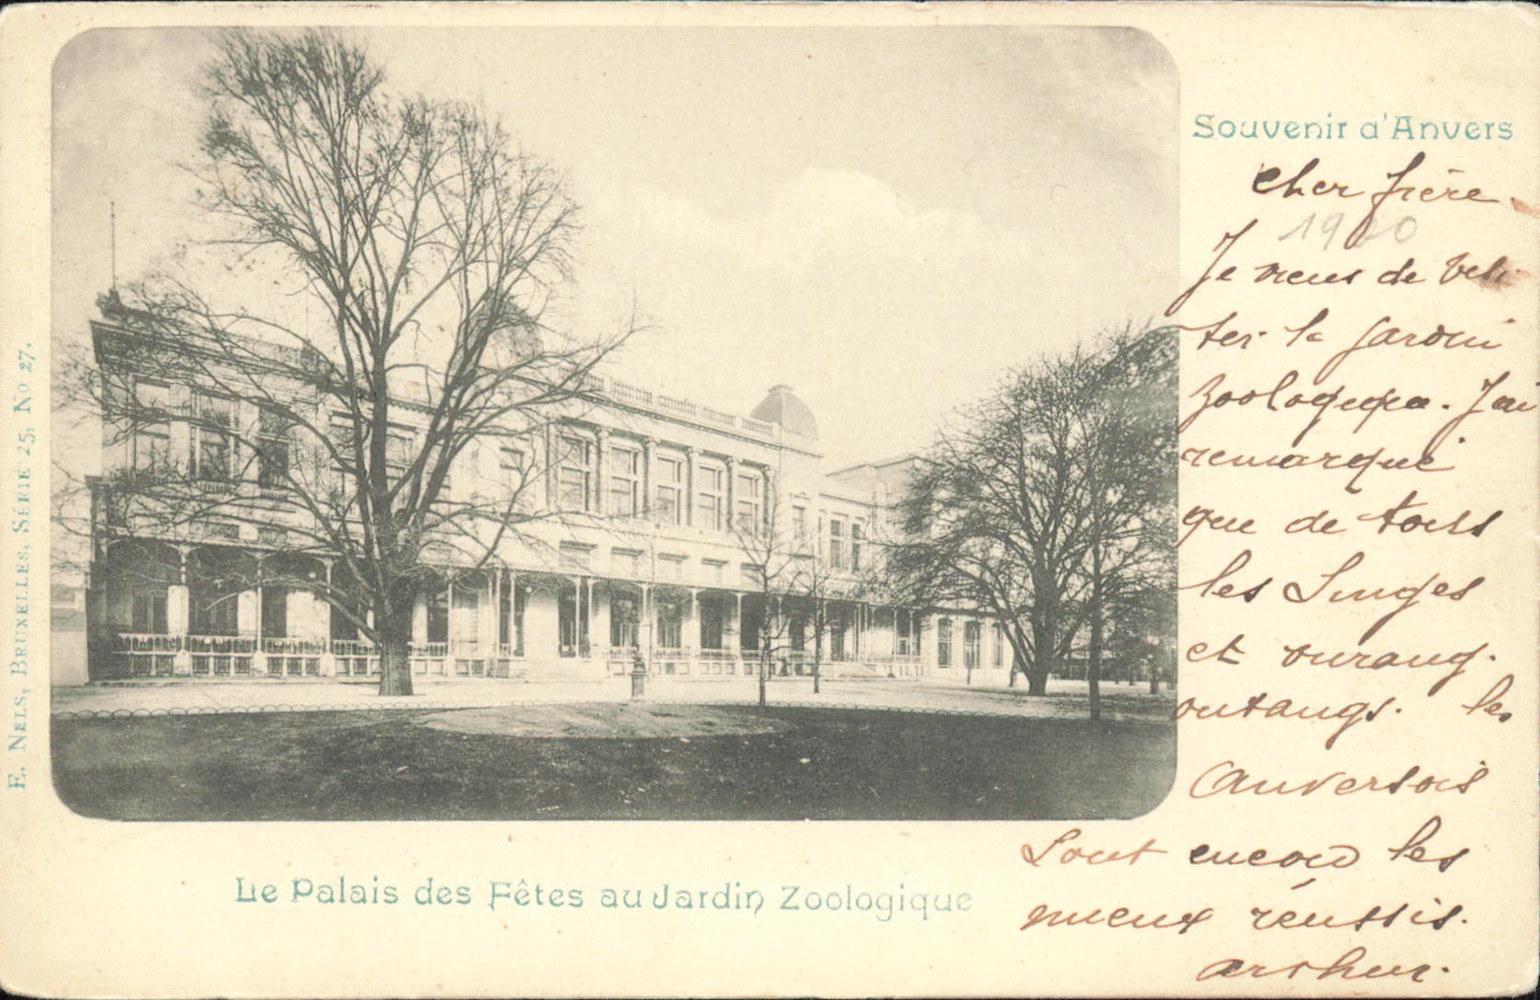 Souvenir d'Anvers
Cher frère.
1900
Je viens de visi
ter le jardin
zoologique. J'ai
remarqué
que de tous
les Singes
et ourang.
outangs. les
Anversois
Sont encore les
mieux réussis.
Arthur.
Le Palais des Fêtes au Jardin Zoologique
E. Nels, Bruxelles, Série 25, No 27.